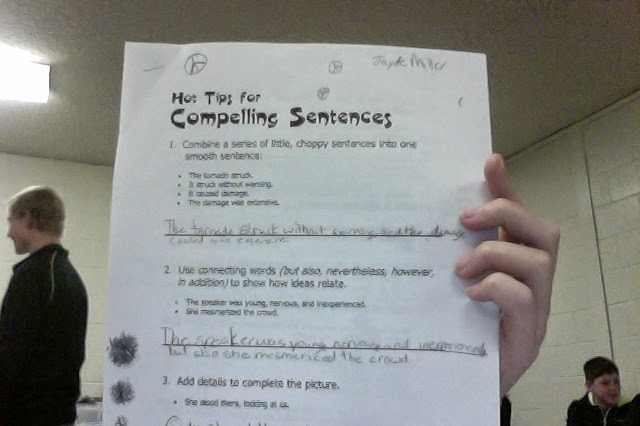 Jayde Miller
Hot Tips for
Compelling Sentences
1. Combine a series of little, choppy sentences into one
smooth sentence:
• The tornado struck.
• It struck without warning.
• It caused damage.
• The damage was extensive.
The tornado struck without warning and the damage
caused was
2. Use connecting words (but also, nevertheless, however,
in addition) to show how ideas relate.
• The speaker was young, nervous, and inexperienced.
• She mesmerized the crowd.
The speaker was young nervous and inexperienced
but also she mesmerized the crowd
3. Add details to complete the picture.
• She stood there, looking at us.